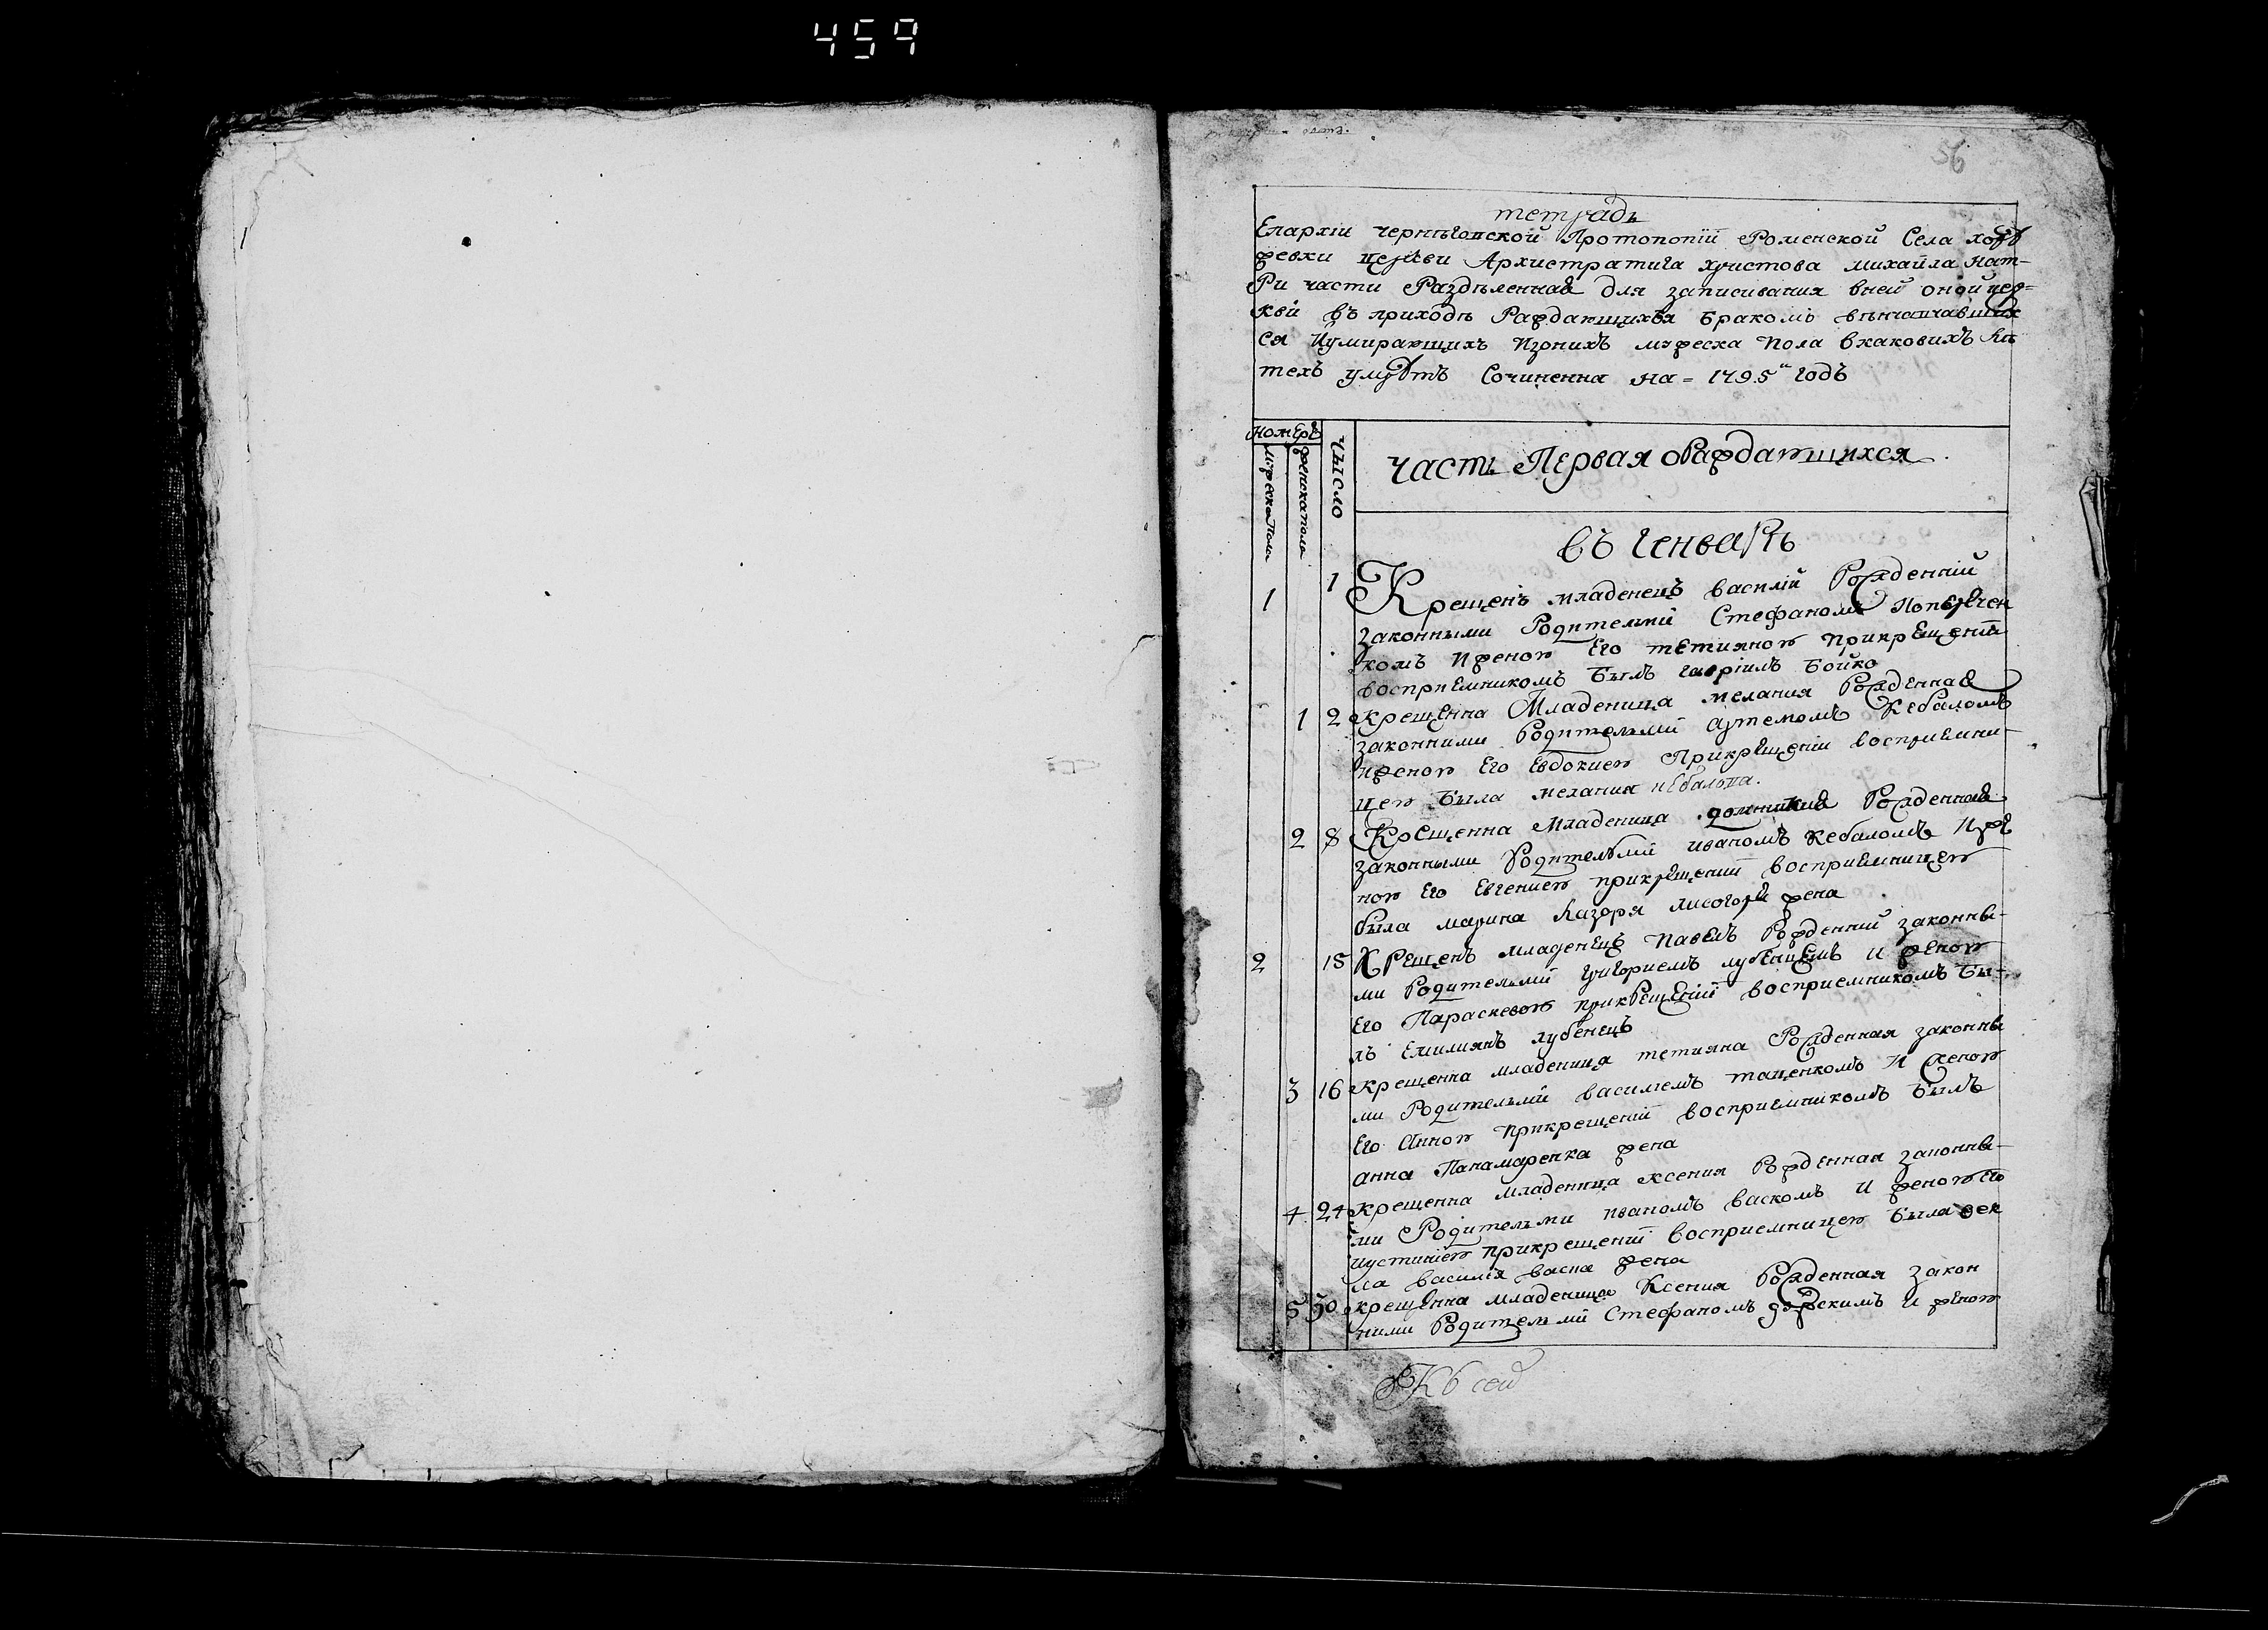 459
56
тетрадь
Епархіи черниговской Протопопіи Роменской Села
церкви Архистратига христова михаила нат-
ри части Раздѣленная для записивания вней оной цер=
кви въ приходѣ Раждающихся бракомъ вѣнчавших
ся Иумирающихъ мужеска пола вкаковихъ лѣ
техъ умрѣтъ Сочиненна на = 1795 годъ
номеръ
мужеска пола
женска пола
число
часть Первая оРаждающихся
въ генварѣ
1 1 Крещенъ младенецъ василій Рожденній
законными Родителми Стефаномъ
комъ иженою Его тетияною прикрещеніи
восприемникомъ былъ гавріилъ бойко
1 2 крещенна Младеница мелания Рожденная
законними Родителми артемомъ кебаломъ
иженою Его Евдокиею Прикрещеніи восприемни-
цею была мелания кебалова.
2 8 Крещенна младеница Рожденная
законными Родителми иваномъ кебаломъ Иже
ною Его Евгениею прикрещеніи восприемницею
была марина жена
2 15 Крещенъ младенецъ павелъ Рожденній законны-
ми Родителми григориемъ лубенцемъ и женою
Его Параскевою прикрещеніи восприемникомъ бы-
лъ Емилиянъ лубенецъ
3 16 крещенна младеница тетияна Рожденная законны
ми Родителми василиемъ таценкомъ и женою
Его Анною прикрещеніи восприемникомъ былъ
анна Панамаренка жена
4 24 крещенна младеница ксения Рожденная законны-
ми Родителми иваномъ васкомъ и женою его
иустиніею прикрещеніи восприемницею была фек
ла василія васка жена
5 30 крещенна младеница Ксения Рожденная закон
ними Родителми Стефаномъ и женою